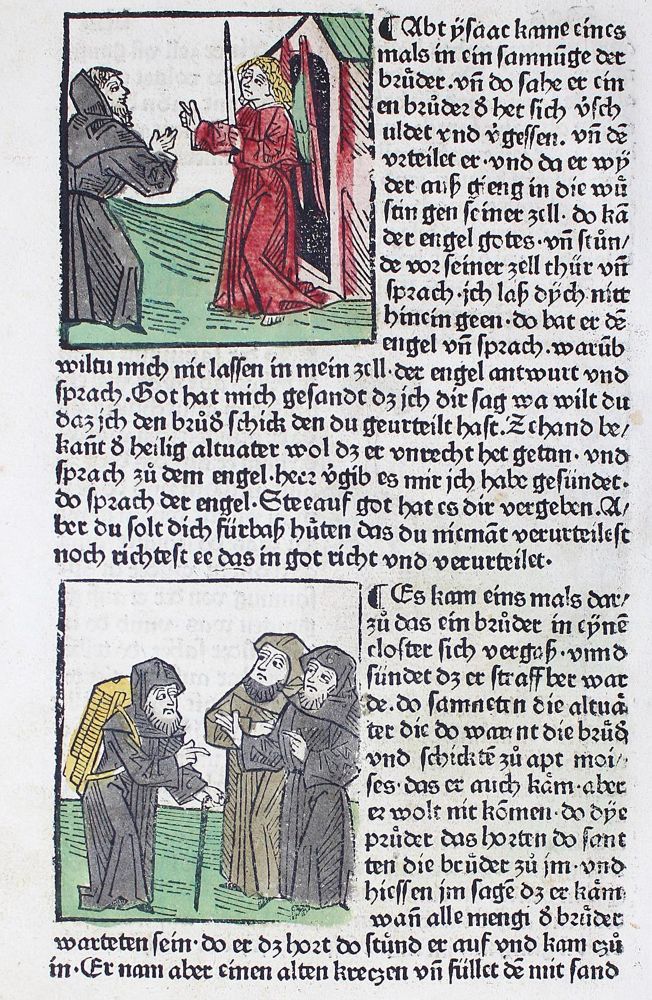 ¶ Abt ẏsaac kame eines
mals in ein samnūge der
brůder. vn̄ do sahe er ein
en brůder ꝺ het sich v̓sch
uldet vnd v̓gessen. vn̄ dē
vrteilet er. vnd da er wy
der auß gieng in die wů
stin gen seiner zell. do kā
der engel gotes. vn̄ stůn/
de vor seiner zell thür vn̄
sprach. ich laß dẏch nitt
hinein geen. do bat er dē
engel vn̄ sprach. warūb
wiltu mich nit lassen in mein zell. der engel antwurt vnd
sprach. Got hat mich gesandt dz ich dir sag wa wilt du
daz ich den brůd̓ schick den du geurteilt hast. Zehand be/
kañt ꝺ heilig altuater wol dz er vnrecht het getan. vnd
sprach zů dem engel. herr v̓gib es mir ich habe gesündet.
do sprach der engel. Stee auf got hat es dir vergeben. A/
ber du solt dich fürbaß hůten das du niemāt verurteilest
noch richtest ee das in got richt vnd verurteilet.
¶ Es kam eins mals dar/
zů das ein brůder in eẏnē
closter sich vergaß. vnnd
sündet dz er straffber war
de. do samneten die altuå
ter die do warnt die brůd̓
vnd schicktē zů apt moi/
ses. das er auch kåm. aber
er wolt nit kōmen. do dẏe
průder das horten do sant
ten die brůder zů jm. vnd
hiessen jm sagē dz er kåm
wañ alle mengi ꝺ brůder
warteten sein. do er dz hort do stůnd er auf vnd kam czů
in. Er nam aber einen alten kreczen vn̄ füllet dē mit sand